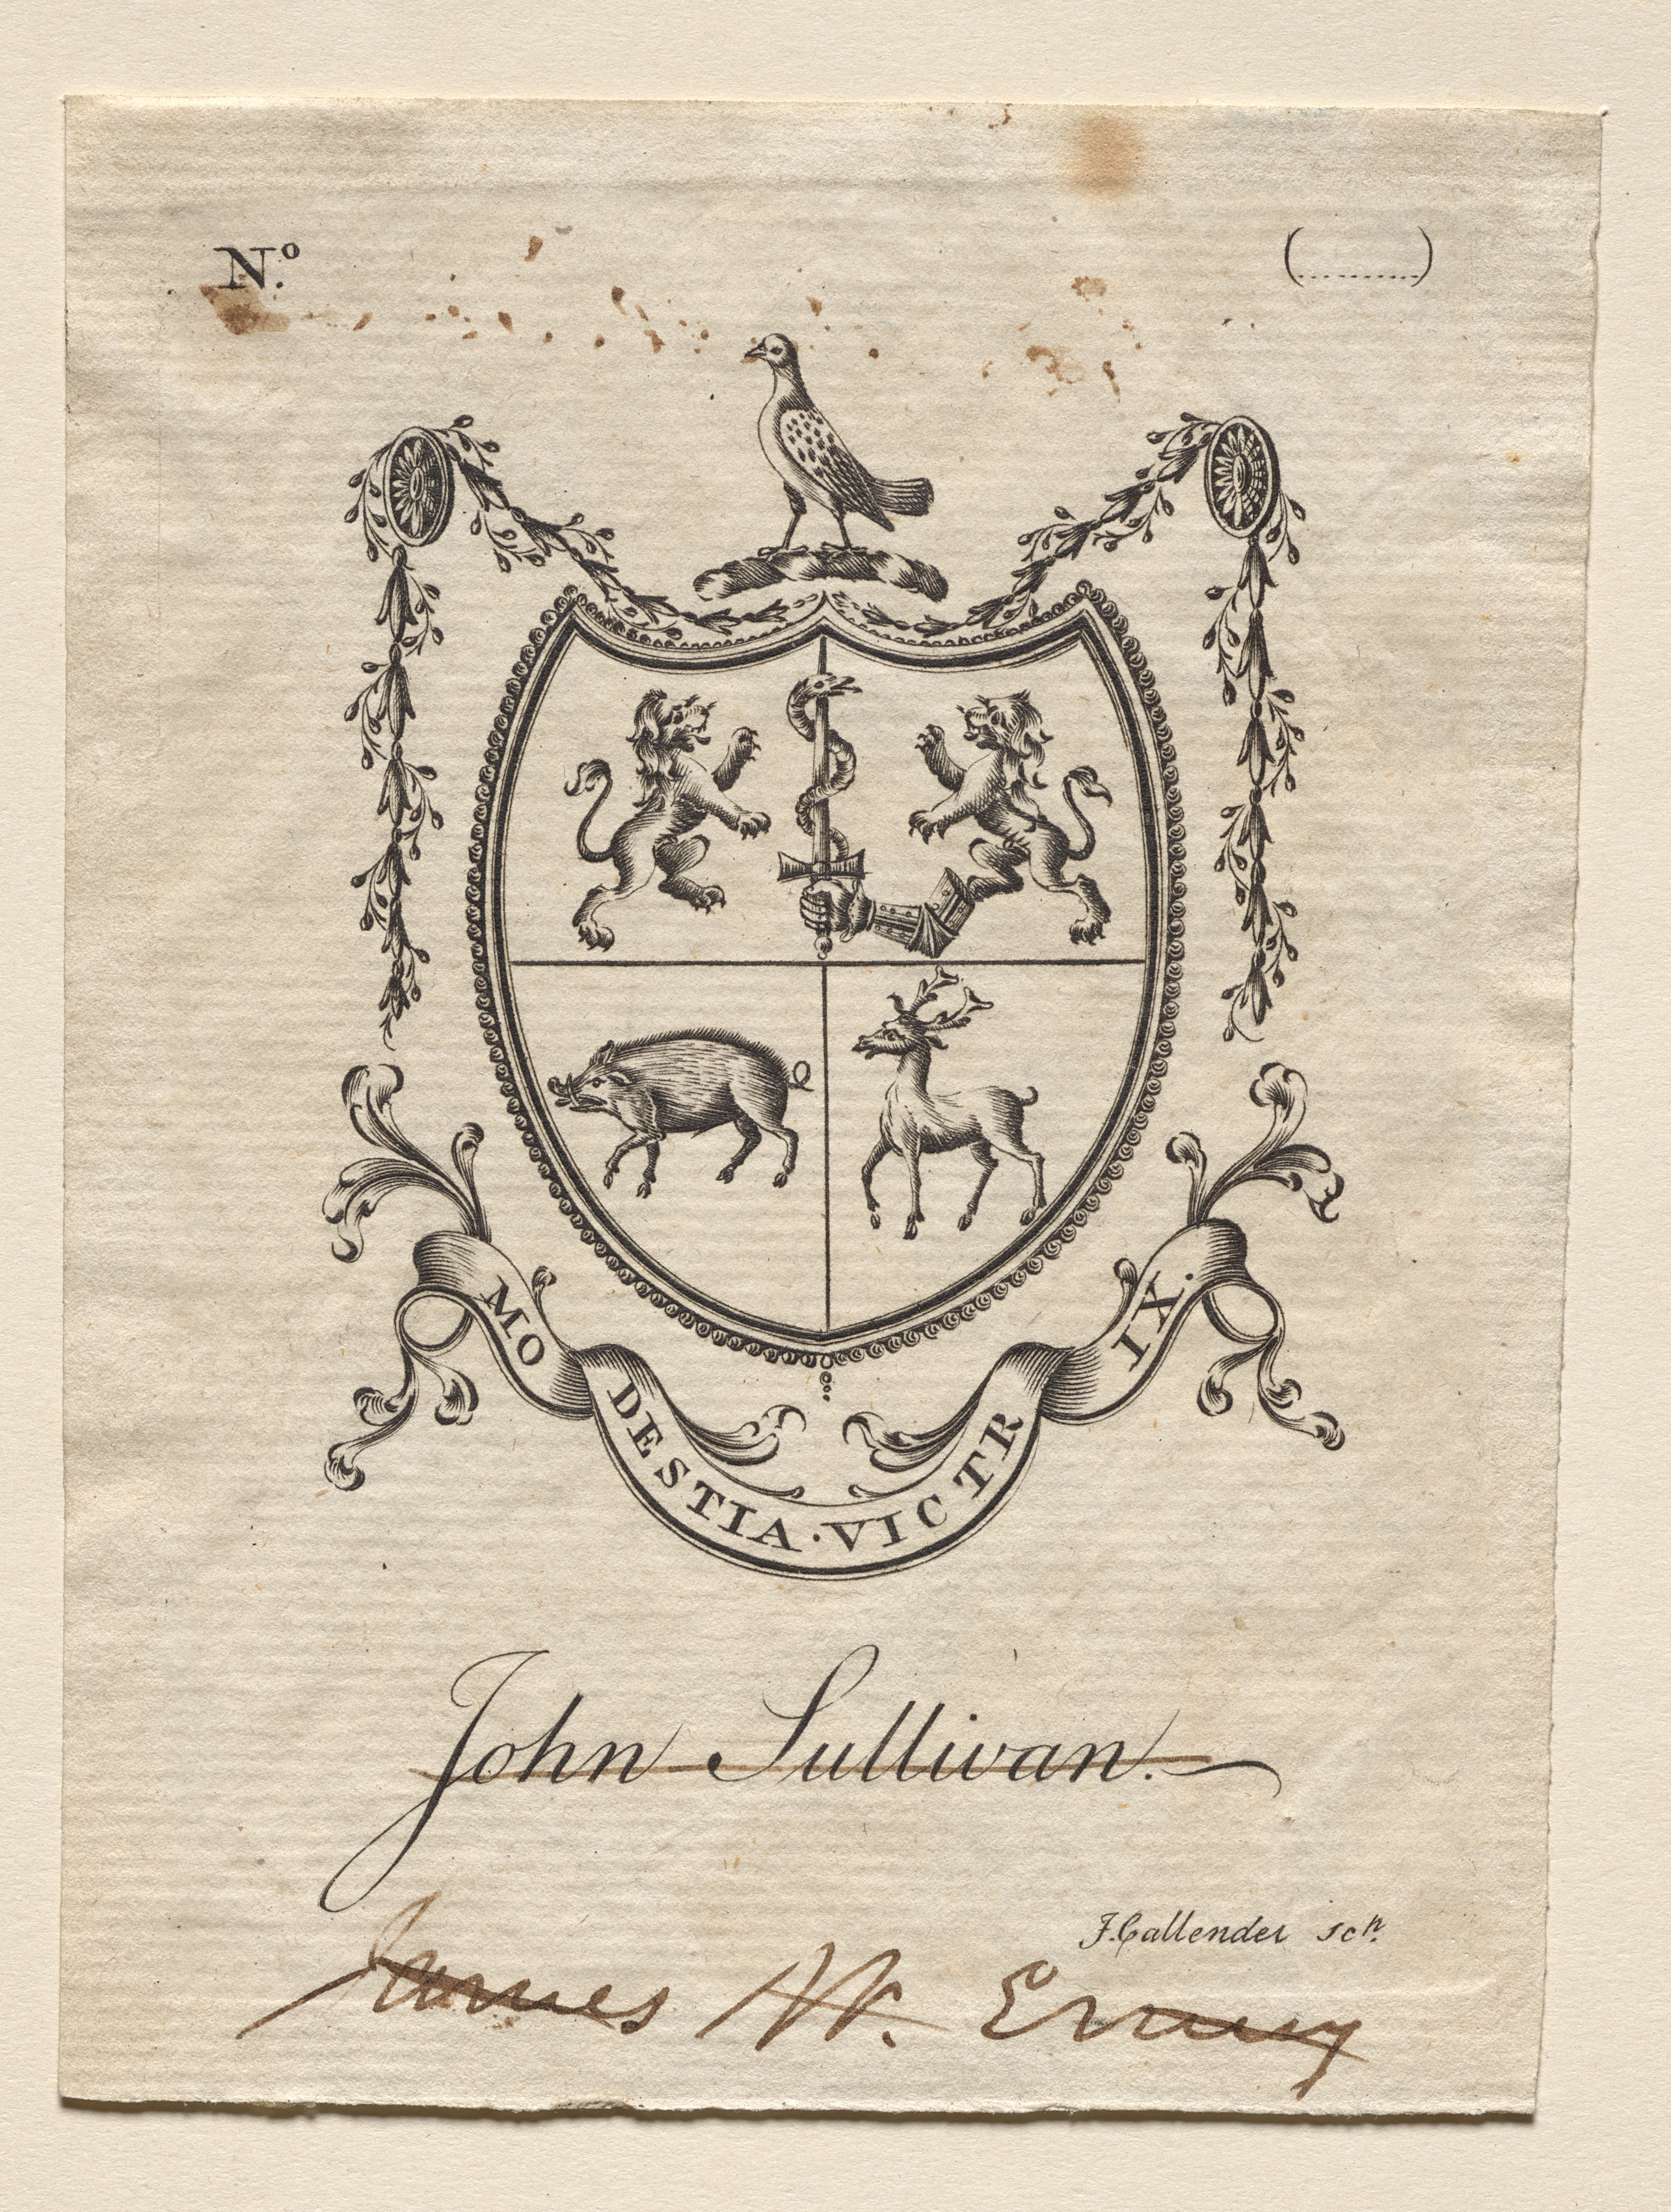 Nº.
(..........)
MODESTIA·VICTRIX.
John Sullivan.
J. Callender Scᵗ.
James W.